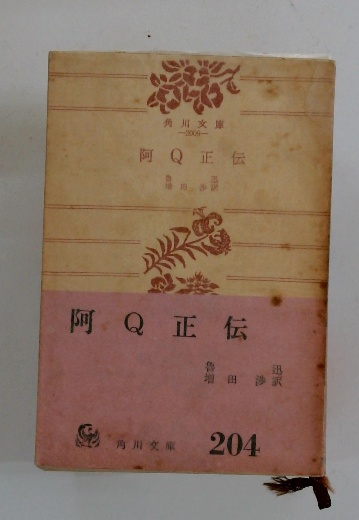 角川文庫
阿Q正伝
魯迅
増田渉訳
阿Q正伝
魯迅
増田渉訳
角川文庫 204